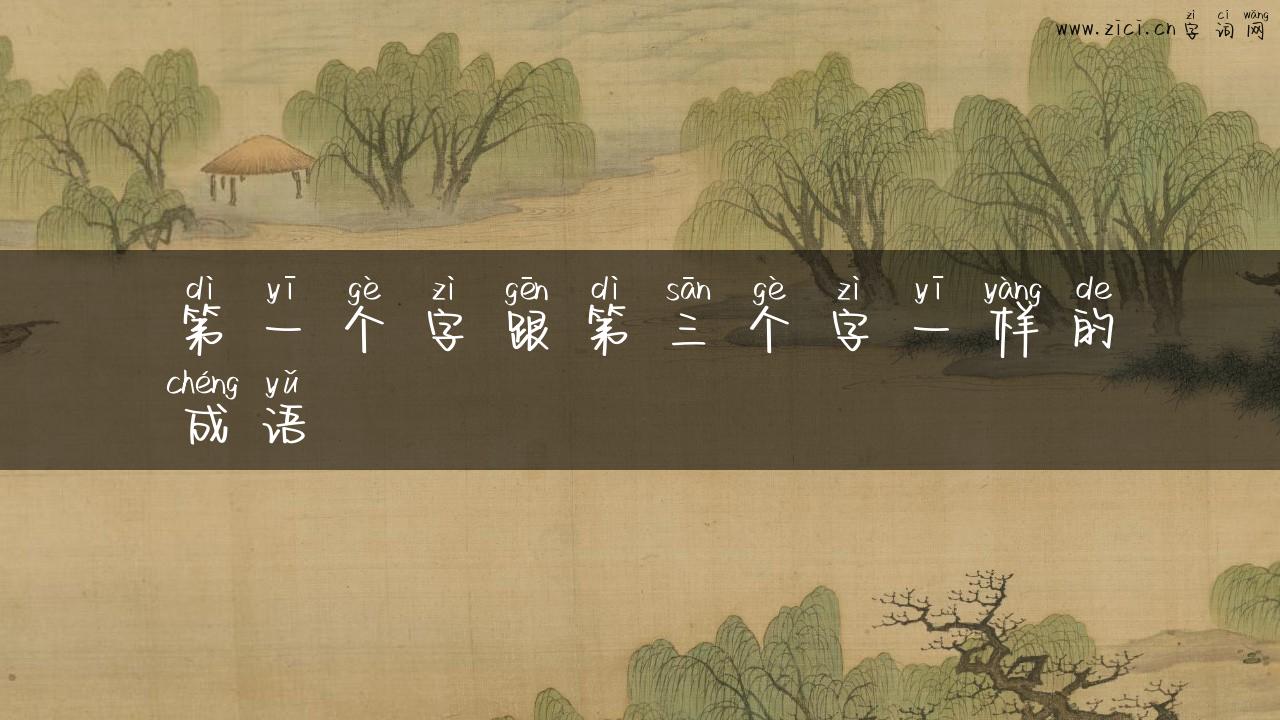 zì cí wǎng
www.zici.cn 字词网
dì yī gè zì gēn dì sān gè zì yī yàng de
第一个字跟第三个字一样的
chéng yǔ
成语